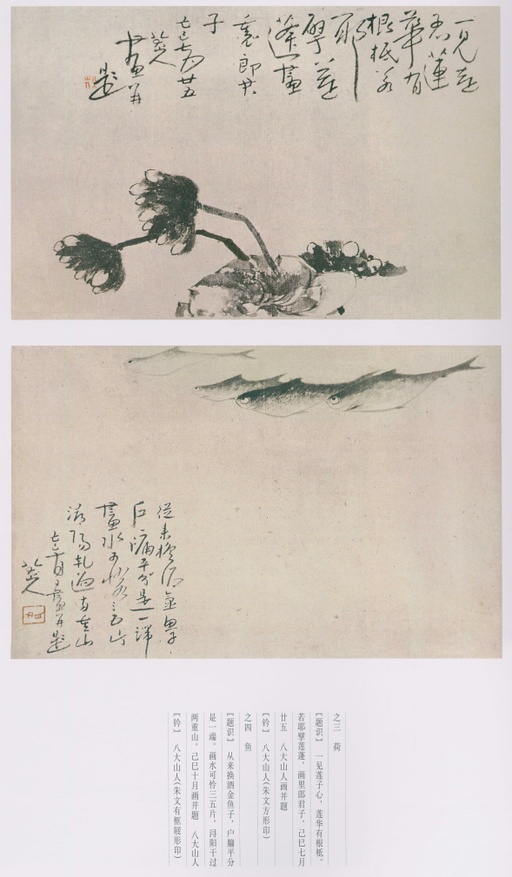 一見蓮
子心蓮
華有
根柢若
耶
擘蓮
蓬畫
裏郎君
子
己巳七月廿五
八大山人
畫并
題
從來換酒金魚子
戶牖平分是一端
畫水可憐三五片
潯陽軋過兩重山
己巳十月畫并題
八大山人
之三　荷
【题识】　一见莲子心，莲华有根柢。
若耶擘莲蓬，画里郎君子，己巳七月
廿五　八大山人画并题
【钤】　八大山人(朱文方形印)
之四　鱼
【题识】　从来换酒金鱼子，户牖平分
是一端。画水可怜三五片，浔阳干过
两重山。己巳十月画并题　八大山人
【钤】　八大山人(朱文有框屐形印)